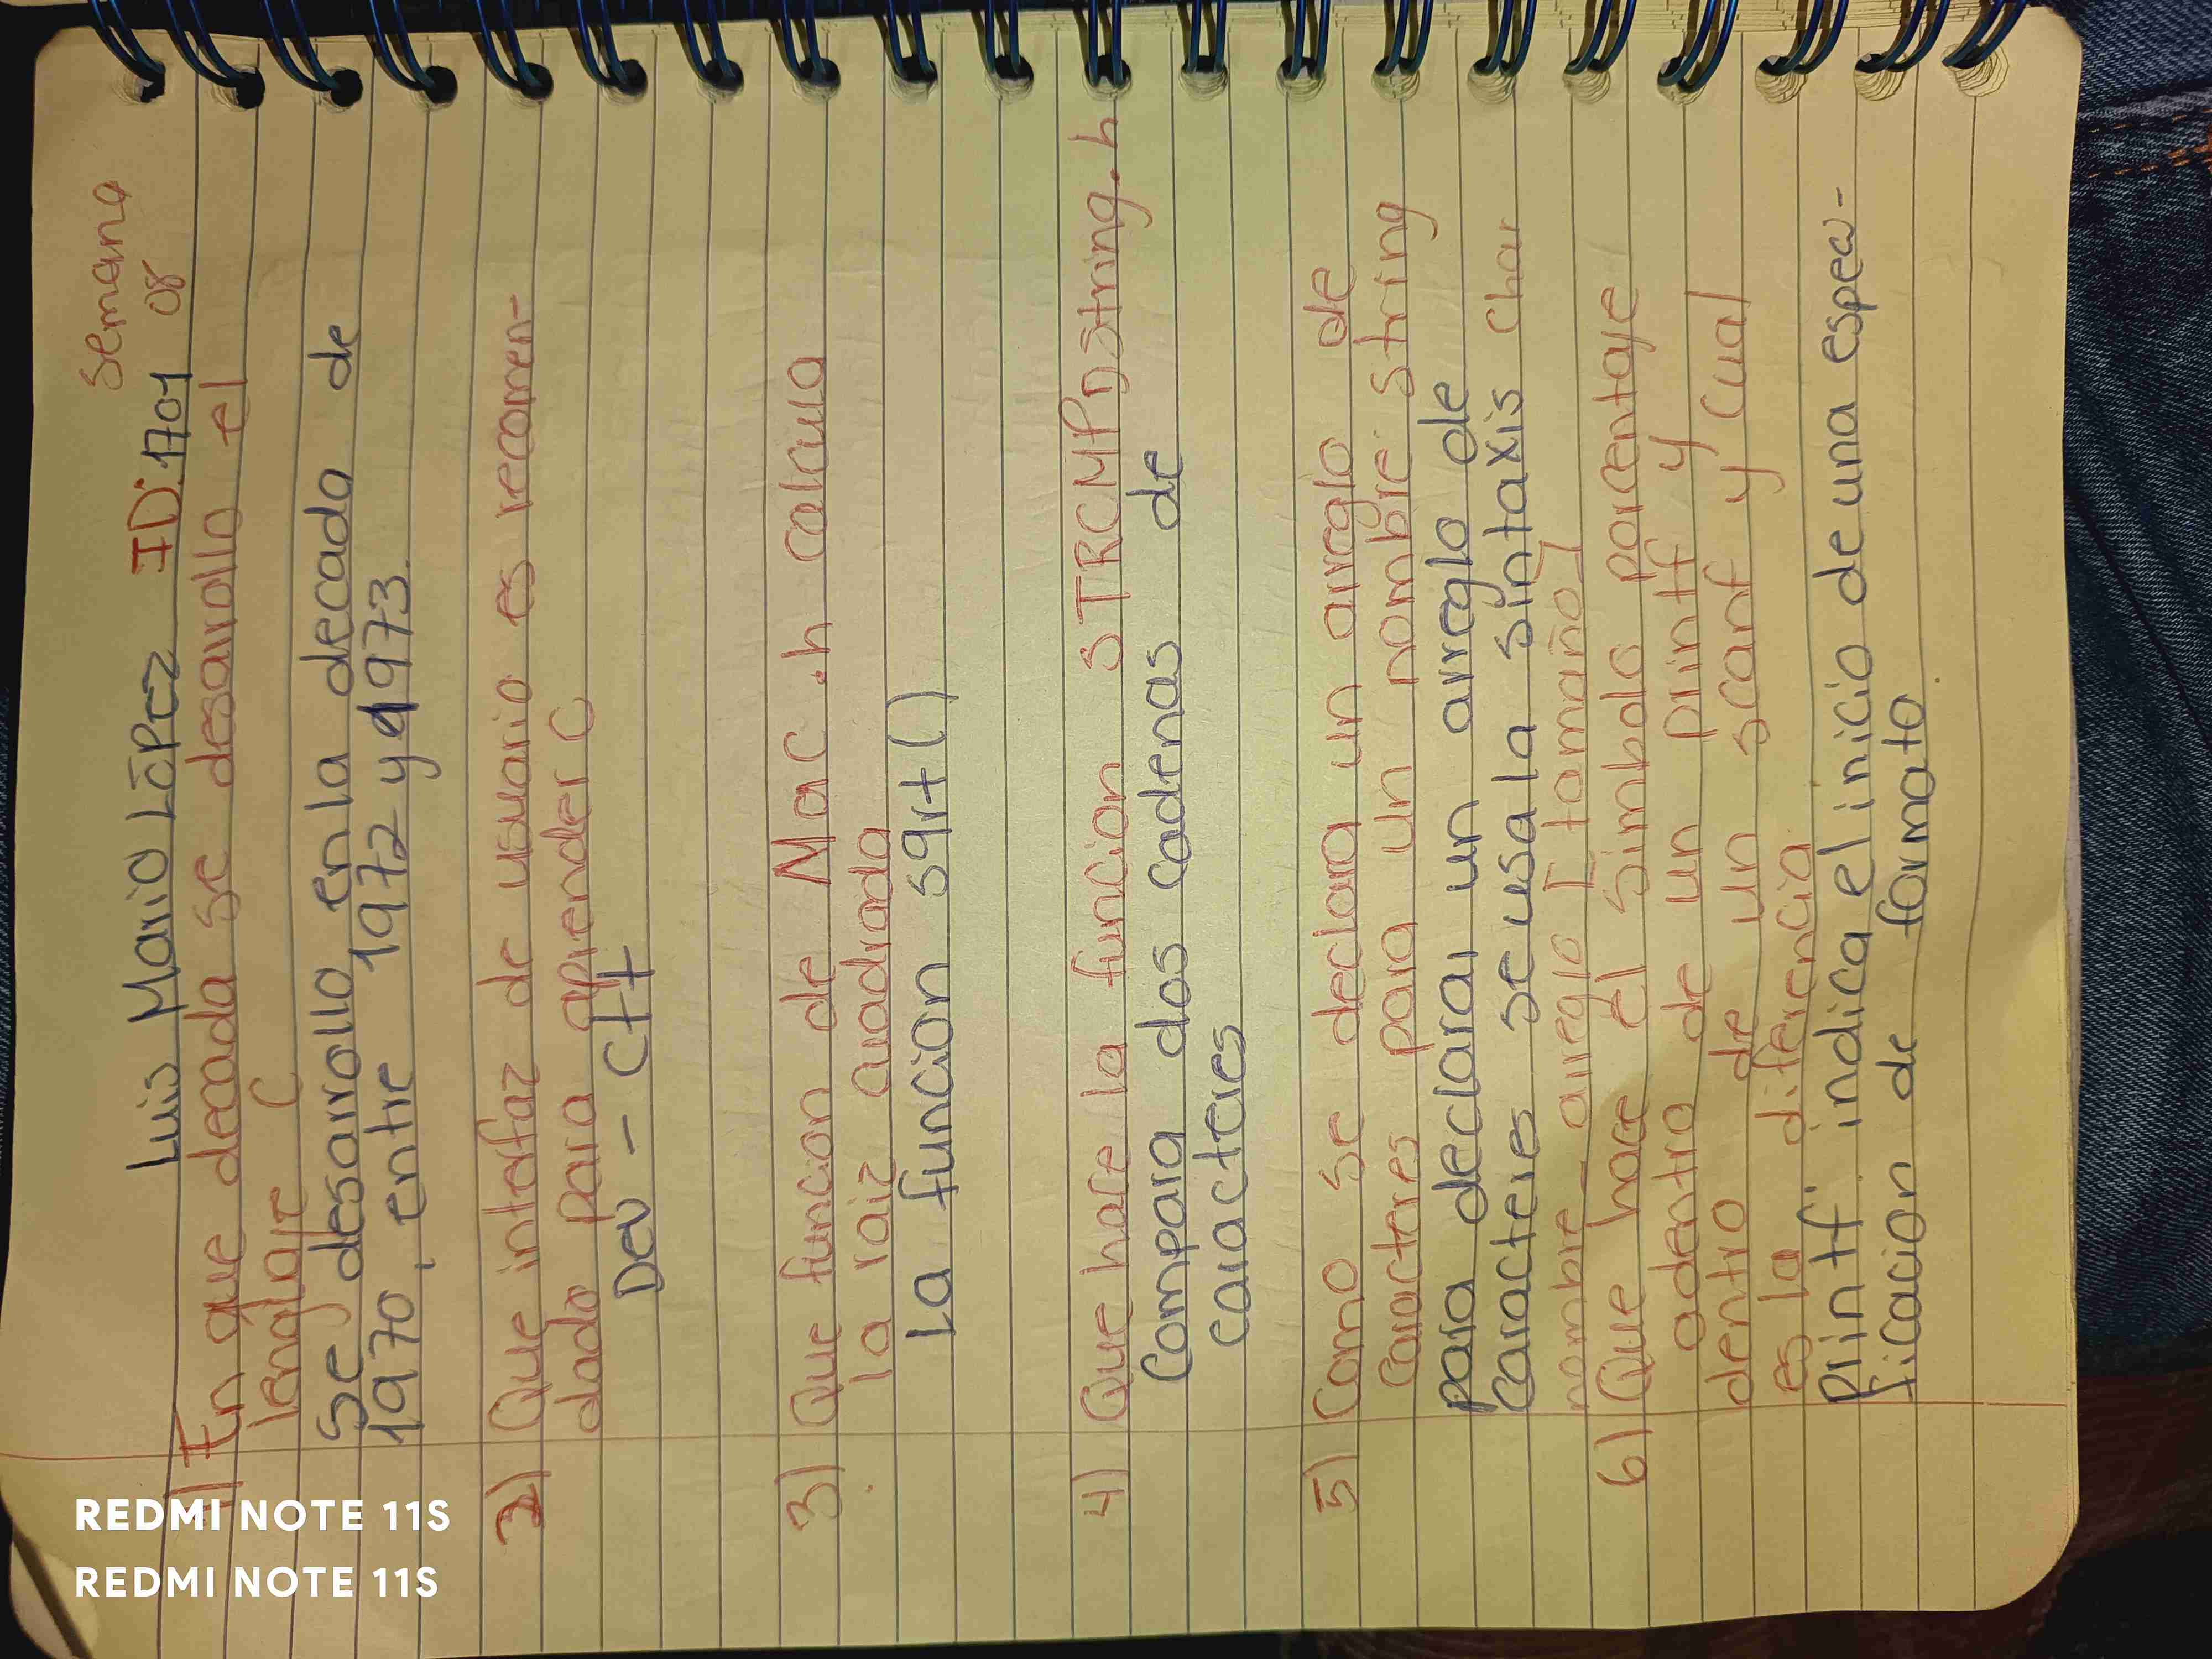 Semana
Luis Mario López ID: 1701 08
1) En que decada se desarrollo el
lenglaje C
Se desarrollo en la decada de
1970, entre 1972 y 1973.
2) Que intefaz de usuario es recomen-
dado para aprender C
Dev - C++
3) Que funcion de Mac .h calcula
la raiz cuadrada
La funcion sqrt()
4) Que hace la funcion STRCMP string.h
Compara dos cadenas de
caracteres
5) Como se declara un arreglo de
caracteres para un nombre: string
para declarar un arreglo de
caracteres se usa la sintaxis char
nombre_arreglo [tamaño]
6) Que hace el simbolo porcentaje
adentro de un printf y
dentro de un scanf y Cual
es la diferencia.
Printf: indica el inicio de una especi-
ficacion de formato.
REDMI NOTE 11S
REDMI NOTE 11S